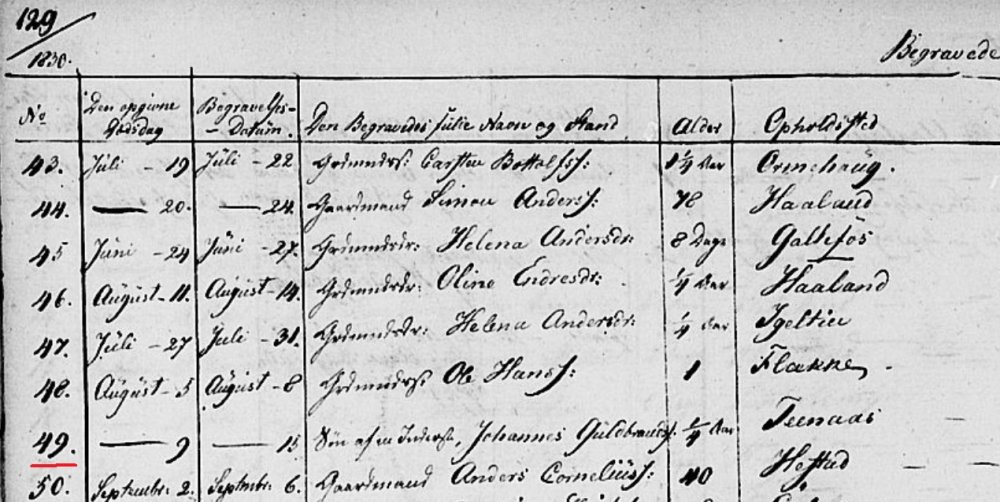 129
1830.
Begravede
No Den opgivne Dødsdag Begravelses-Datum. Den Begravedes fulle Navn og Stand Alder Opholdsted
43. Juli - 19 Juli - 22 Grdmnds: Carsten Bottolfs: 1/4 Aar
44. — 20. — 24. Gaardmand Simon Anders: 78 Haaland
45 Juni - 24 Juni - 27. Grdmndsdr: Helena Andersdr: 8 Dage
46. August - 11. August - 14. Grdmndsdr: Oline Endresdr: 1/4 Aar Haaland
47. Juli - 27 Juli - 31. Grdmndsdr: Helena Andersdr: 1/4 Aar
48. August - 5 August - 8 Grdmnds: Ole Hans: 1 Flakke
49. — 9 — 15 Søn af en Inderst, Johannes Guldbrands: 1/4 Aar Teenaas
50. Septembr: 2. Septmbr: 6. Gaardmand Anders Cornelius: 40 Hestad